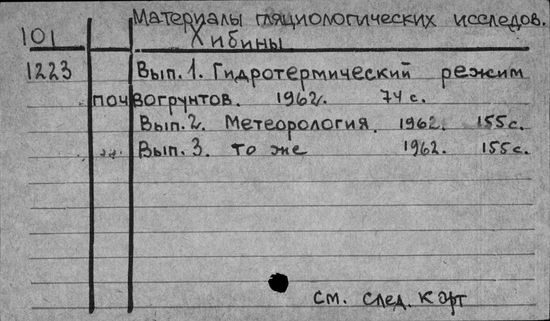 Материалы гляциологических исследов.
101 Хибины
1223 Вып. 1. Гидротермический режим
почвогрунтов. 1962. 74 с.
Вып. 2. Метеорология. 1962. 155 с.
Вып. 3. то же 1962. 155 с.
см. след. карт